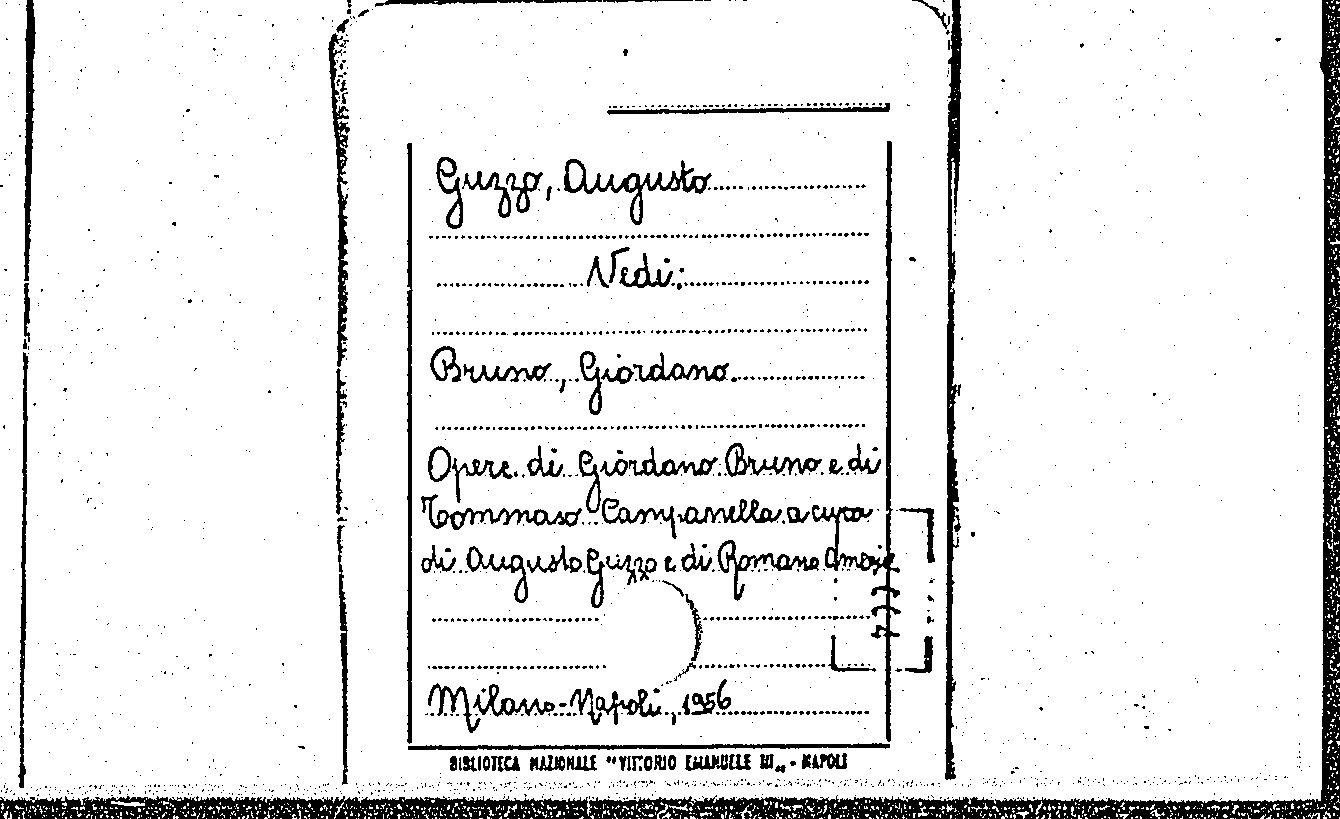 Guzzo, Augusto
Vedi:
Bruno, Giordano.
Opere di Giordano Bruno e di
Tommaso Campanella a cura
di Augusto Guzzo e di Romano Amerio
Milano-Napoli, 1956
BIBLIOTECA NAZIONALE "VITTORIO EMANUELE III„ - NAPOLI